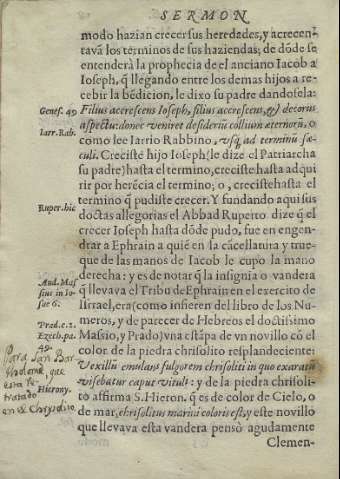 SERMON
modo hazian crecer sus heredades, y acrecen-
tavã los terminos de sus haziendas; de dõde se
entenderà la prophecia de el anciano Iacob a
Ioseph, q̃ llegando entre los demas hijos a re-
cebir la bẽdicion, le dixo su padre dandosela:
Genes. 49
Filius accrescens Ioseph, filius accrescens, & decorus
aspectu: donec veniret desideriũ collium æternorũ, o
Iarr. Rab.
como lee Iarrio Rabbino, vsq; ad terminũ sæ-
culi. Creciste hijo Ioseph (le dize el Patriarcha
su padre) hasta el termino, creciste hasta adqui
rir por herẽcia el termino; o, creciste hasta el
termino q̃ pudiste crecer. Y fundando aqui sus
Ruper. hic
doctas allegorias el Abbad Ruperto dize q̃ el
crecer Ioseph hasta dõde pudo, fue en engen-
drar a Ephrain a quiẽ en la cãcellatura y true-
que de las manos de Iacob le cupo la mano
derecha: y es de notar q̃ la insignia o vandera
And. Mas
sius in Io-
sue 6.
q̃ llevava el Tribu de Ephrain en el exercito de
Isrrael, era (como infieren del libro de los Nu
meros, y de parecer de Hebreos el doctissimo
Prad. c. 1.
Ezech. pa.
49.
Massio, y Prado) vna estãpa de vn novillo cõ el
color de la piedra chrisolito resplandeciente:
Vexillũ emulans fulgorem chrisoliti in quo exaratũ
visebatur caput vituli: y de la piedra chrisoli-
Hierony.
to affirma S. Hieron. q̃ es de color de Cielo, o
de mar, chrisolitus marini coloris est, y este novillo
que llevava esta vandera pensò agudamente
Clemen-
Para San Bar
tholome, que
esta re
tratado
en el Chrysolito